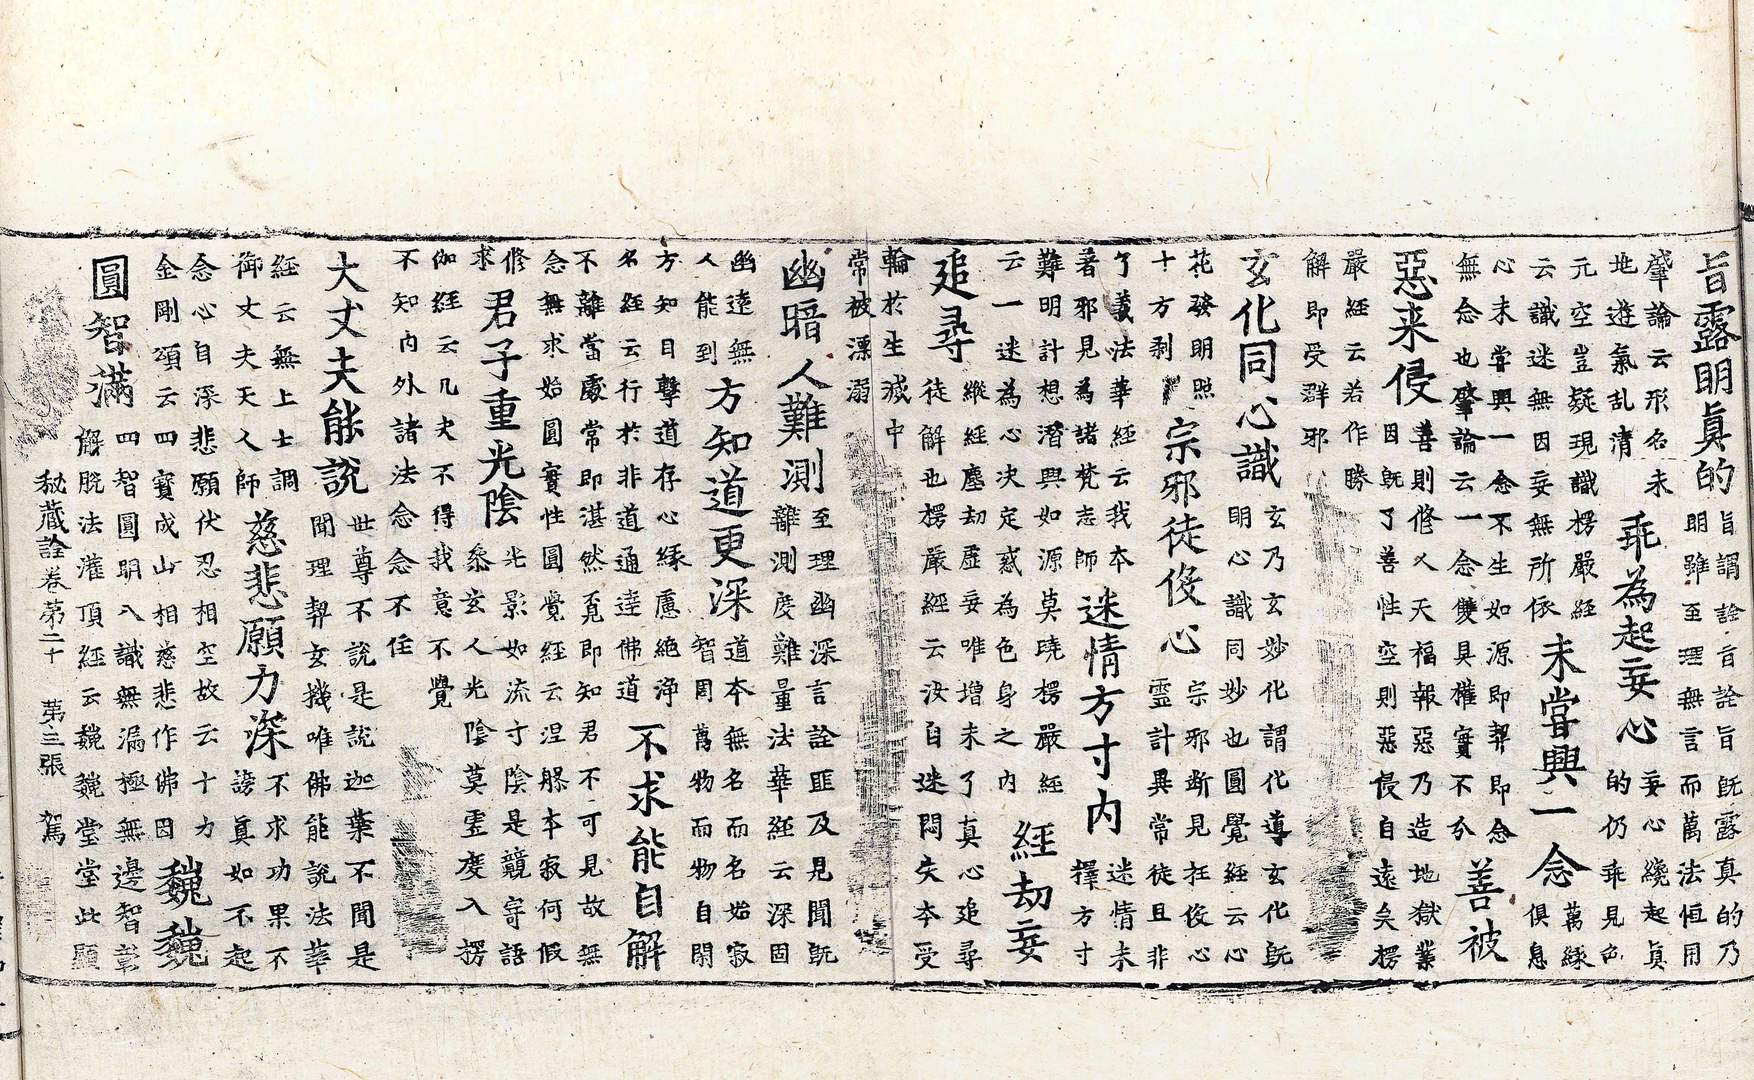 旨露明真的
旨謂詮旨詮旨既露真的乃
明雖至理無言而萬法恒用
肇論云形名未
地遊氣乱清
乖為起妄心
妄心纔起真
的仍乖見色
元空豈疑現識楞嚴經
云識迷無因妄無所依
未嘗興一念
萬緣
俱息
心未嘗興一念不生如源即契即念
無念也肇論云一念雙具權實不分
善被
惡来侵
善則修人天福報惡乃造地獄業
因既了善性空則惡侵自遠矣楞
嚴經云若作勝
解即受群邪
玄化同心識
玄乃玄妙化謂化導玄化既
明心識同妙也圓覺經云心
花發明照
十方剎
宗邪徒役心
宗邪断見狂役心
靈計異常徒且非
了義法華經云我本
著邪見為諸梵志師
迷情方寸内
迷情未
擇方寸
難明計想潜興如源莫曉楞嚴經
云一迷為心决定惑為色身之内
經劫妄
追尋
縱經塵劫虛妄唯增未了真心追尋
徒解也楞嚴經云汝自迷悶失本受
輪於生滅中
常被漂溺
幽暗人難測
至理幽深言詮匪及見聞既
難測度難量法華經云深固
幽遠無
人能到
方知道更深
道本無名而名始寂
智罔萬物而物自閑
方知目擊道存心緣慮絶浄
名經云行於非道通達佛道
不求能自解
不離當處常即湛然覔即知君不可見故無
念無求始圓實性圓覺經云涅槃本寂何假
修
求
君子重光陰
光影如流寸陰是競守語
叅玄人光陰莫虛度入楞
伽經云凡夫不得我意不覺
不知内外諸法念念不住
大丈夫能説
世尊不說是說迦葉不聞是
聞理契玄機唯佛能說法華
經云無上士調
御丈夫天人師
慈悲願力深
不求功果不
謗真如不起
念心自深悲願伏忍相空故云十力
金剛頌云四寶成山相慈悲作佛因
巍巍
圓智滿
四智圓明八識無漏極無邊智彰
解脱法灌頂經云巍巍堂堂此顯
秘藏詮卷第二十 第三張 駕